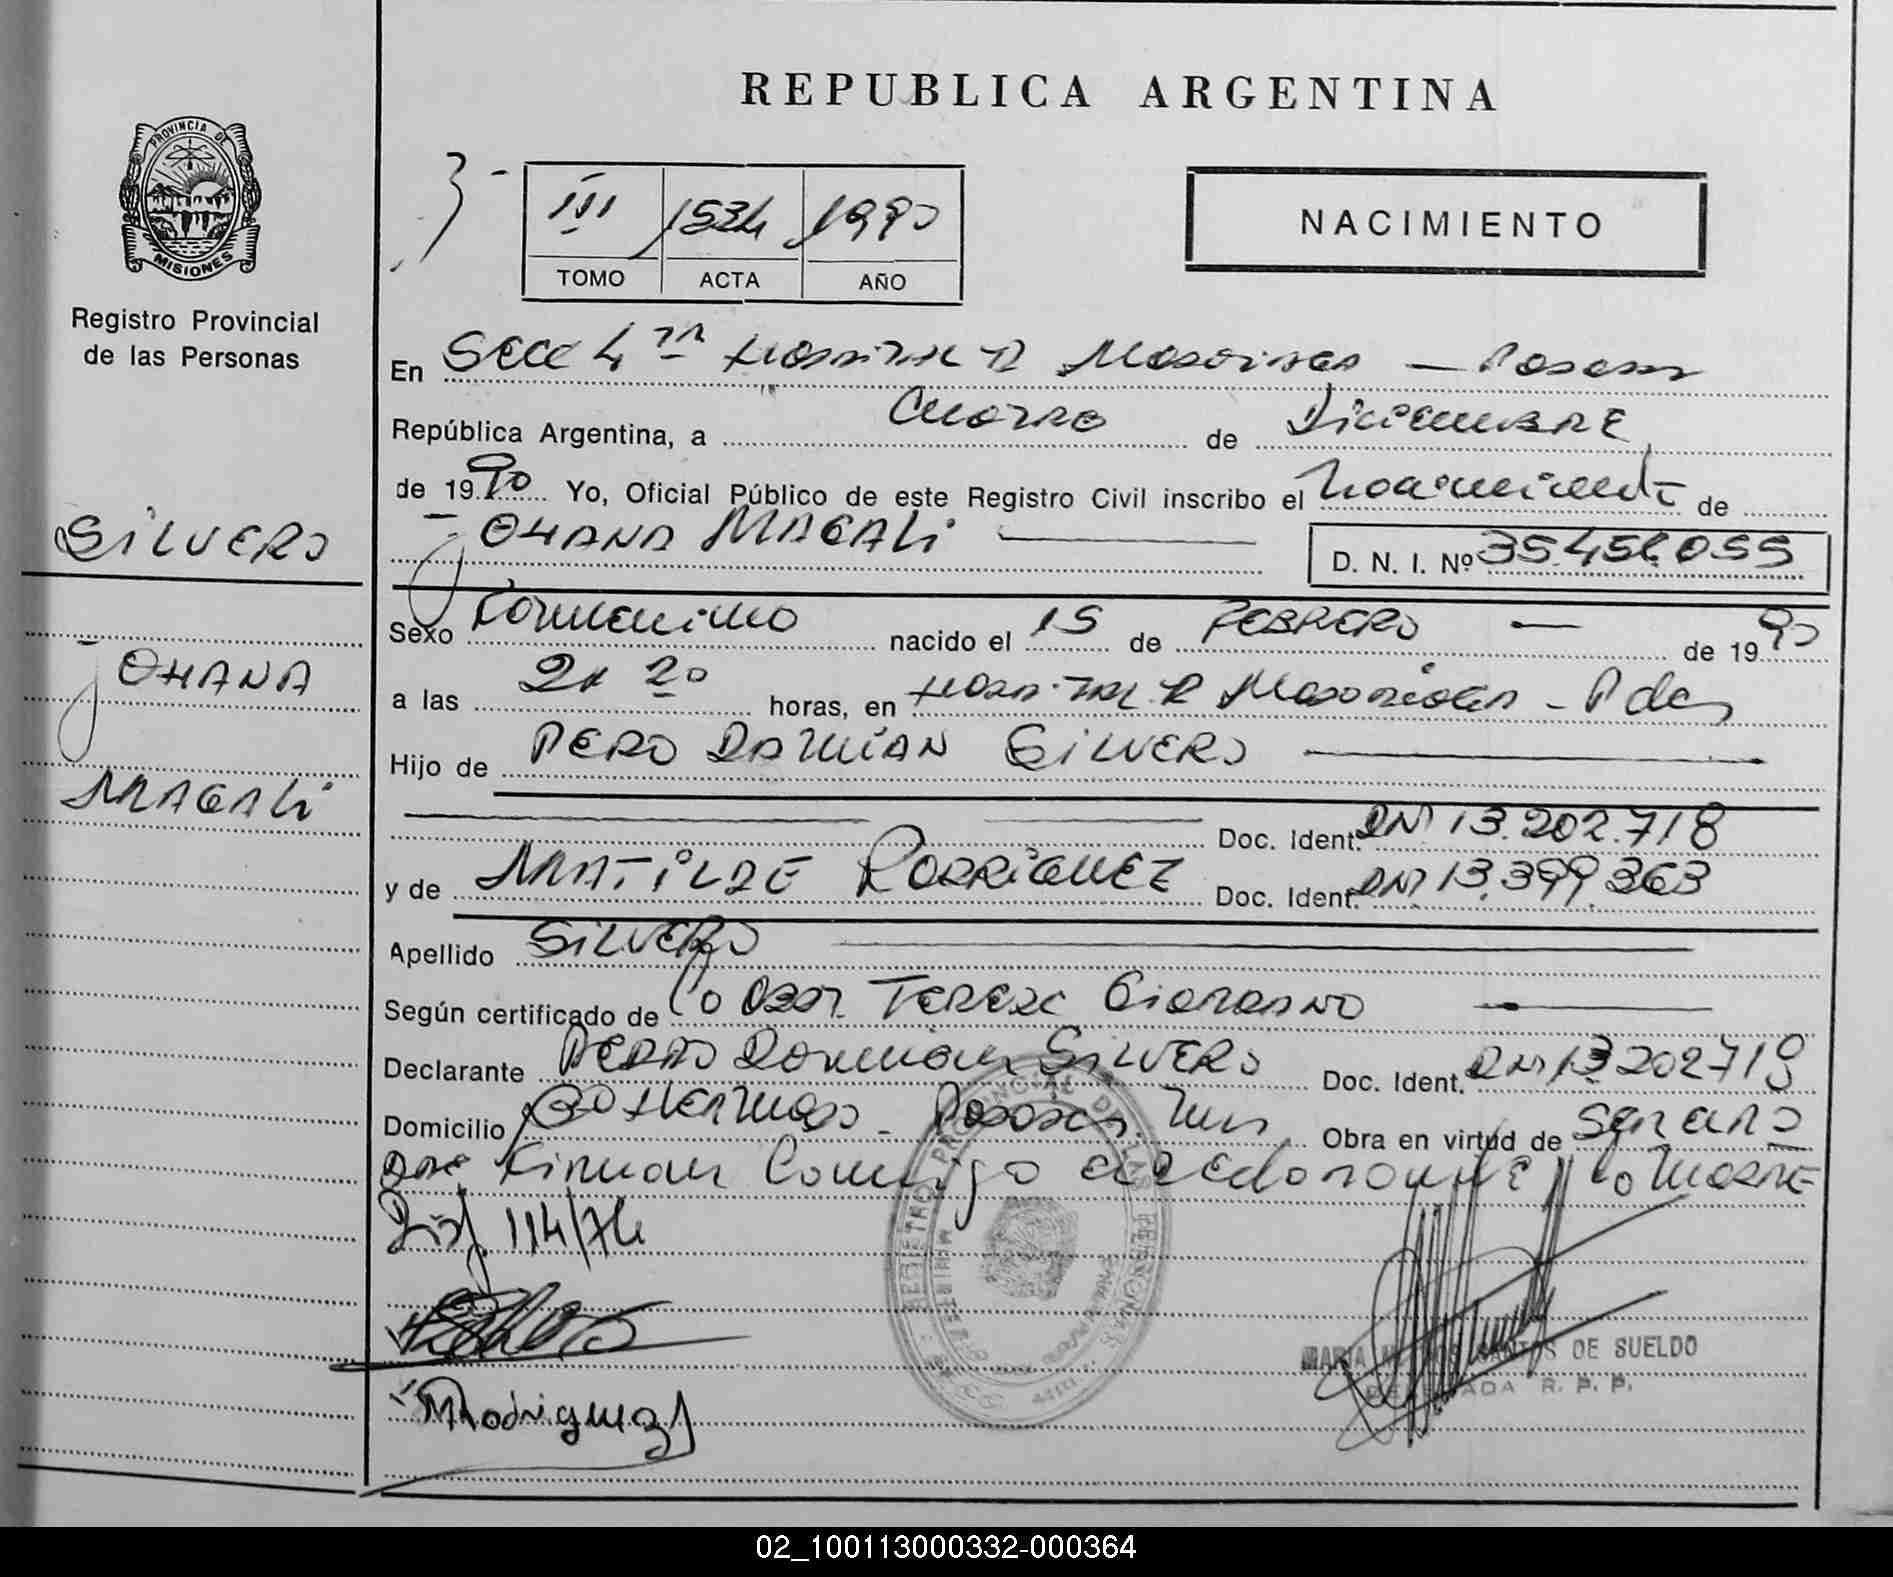 REPUBLICA ARGENTINA
PROVINCIA DE
MISIONES
Registro Provincial
de las Personas
3-
III 1534 1990
TOMO ACTA AÑO
NACIMIENTO
En Secc 4ta Hospital R Madariaga — Posadas
República Argentina, a Cuatro de Diciembre
de 1990 Yo, Oficial Público de este Registro Civil inscribo el Nacimiento de
JOHANA MAGALI D. N. I. Nº 35.456.055
SILVERO
JOHANA
MAGALI
Sexo Femenino nacido el 15 de FEBRERO — de 1990
a las 21 20 horas, en Hospital R Madariaga - Pdas
Hijo de PEDRO DAMIAN SILVERO
Doc. Ident. DNI 13.202.718
y de MATILDE RODRIGUEZ Doc. Ident. DNI 13.399.363
Apellido SILVERO
Según certificado de la Obst. Teresa Giordano
Declarante PEDRO Damian SILVERO Doc. Ident. DNI 13202718
Domicilio Bº Hermoso - Posadas. Mnes Obra en virtud de ser
Firman Conmigo la Madre
114/76
MRodriguez
REGISTRO PROVINCIAL DE LAS PERSONAS
MARIA SANTOS DE SUELDO
DELEGADA R. P. P.
02_100113000332-000364